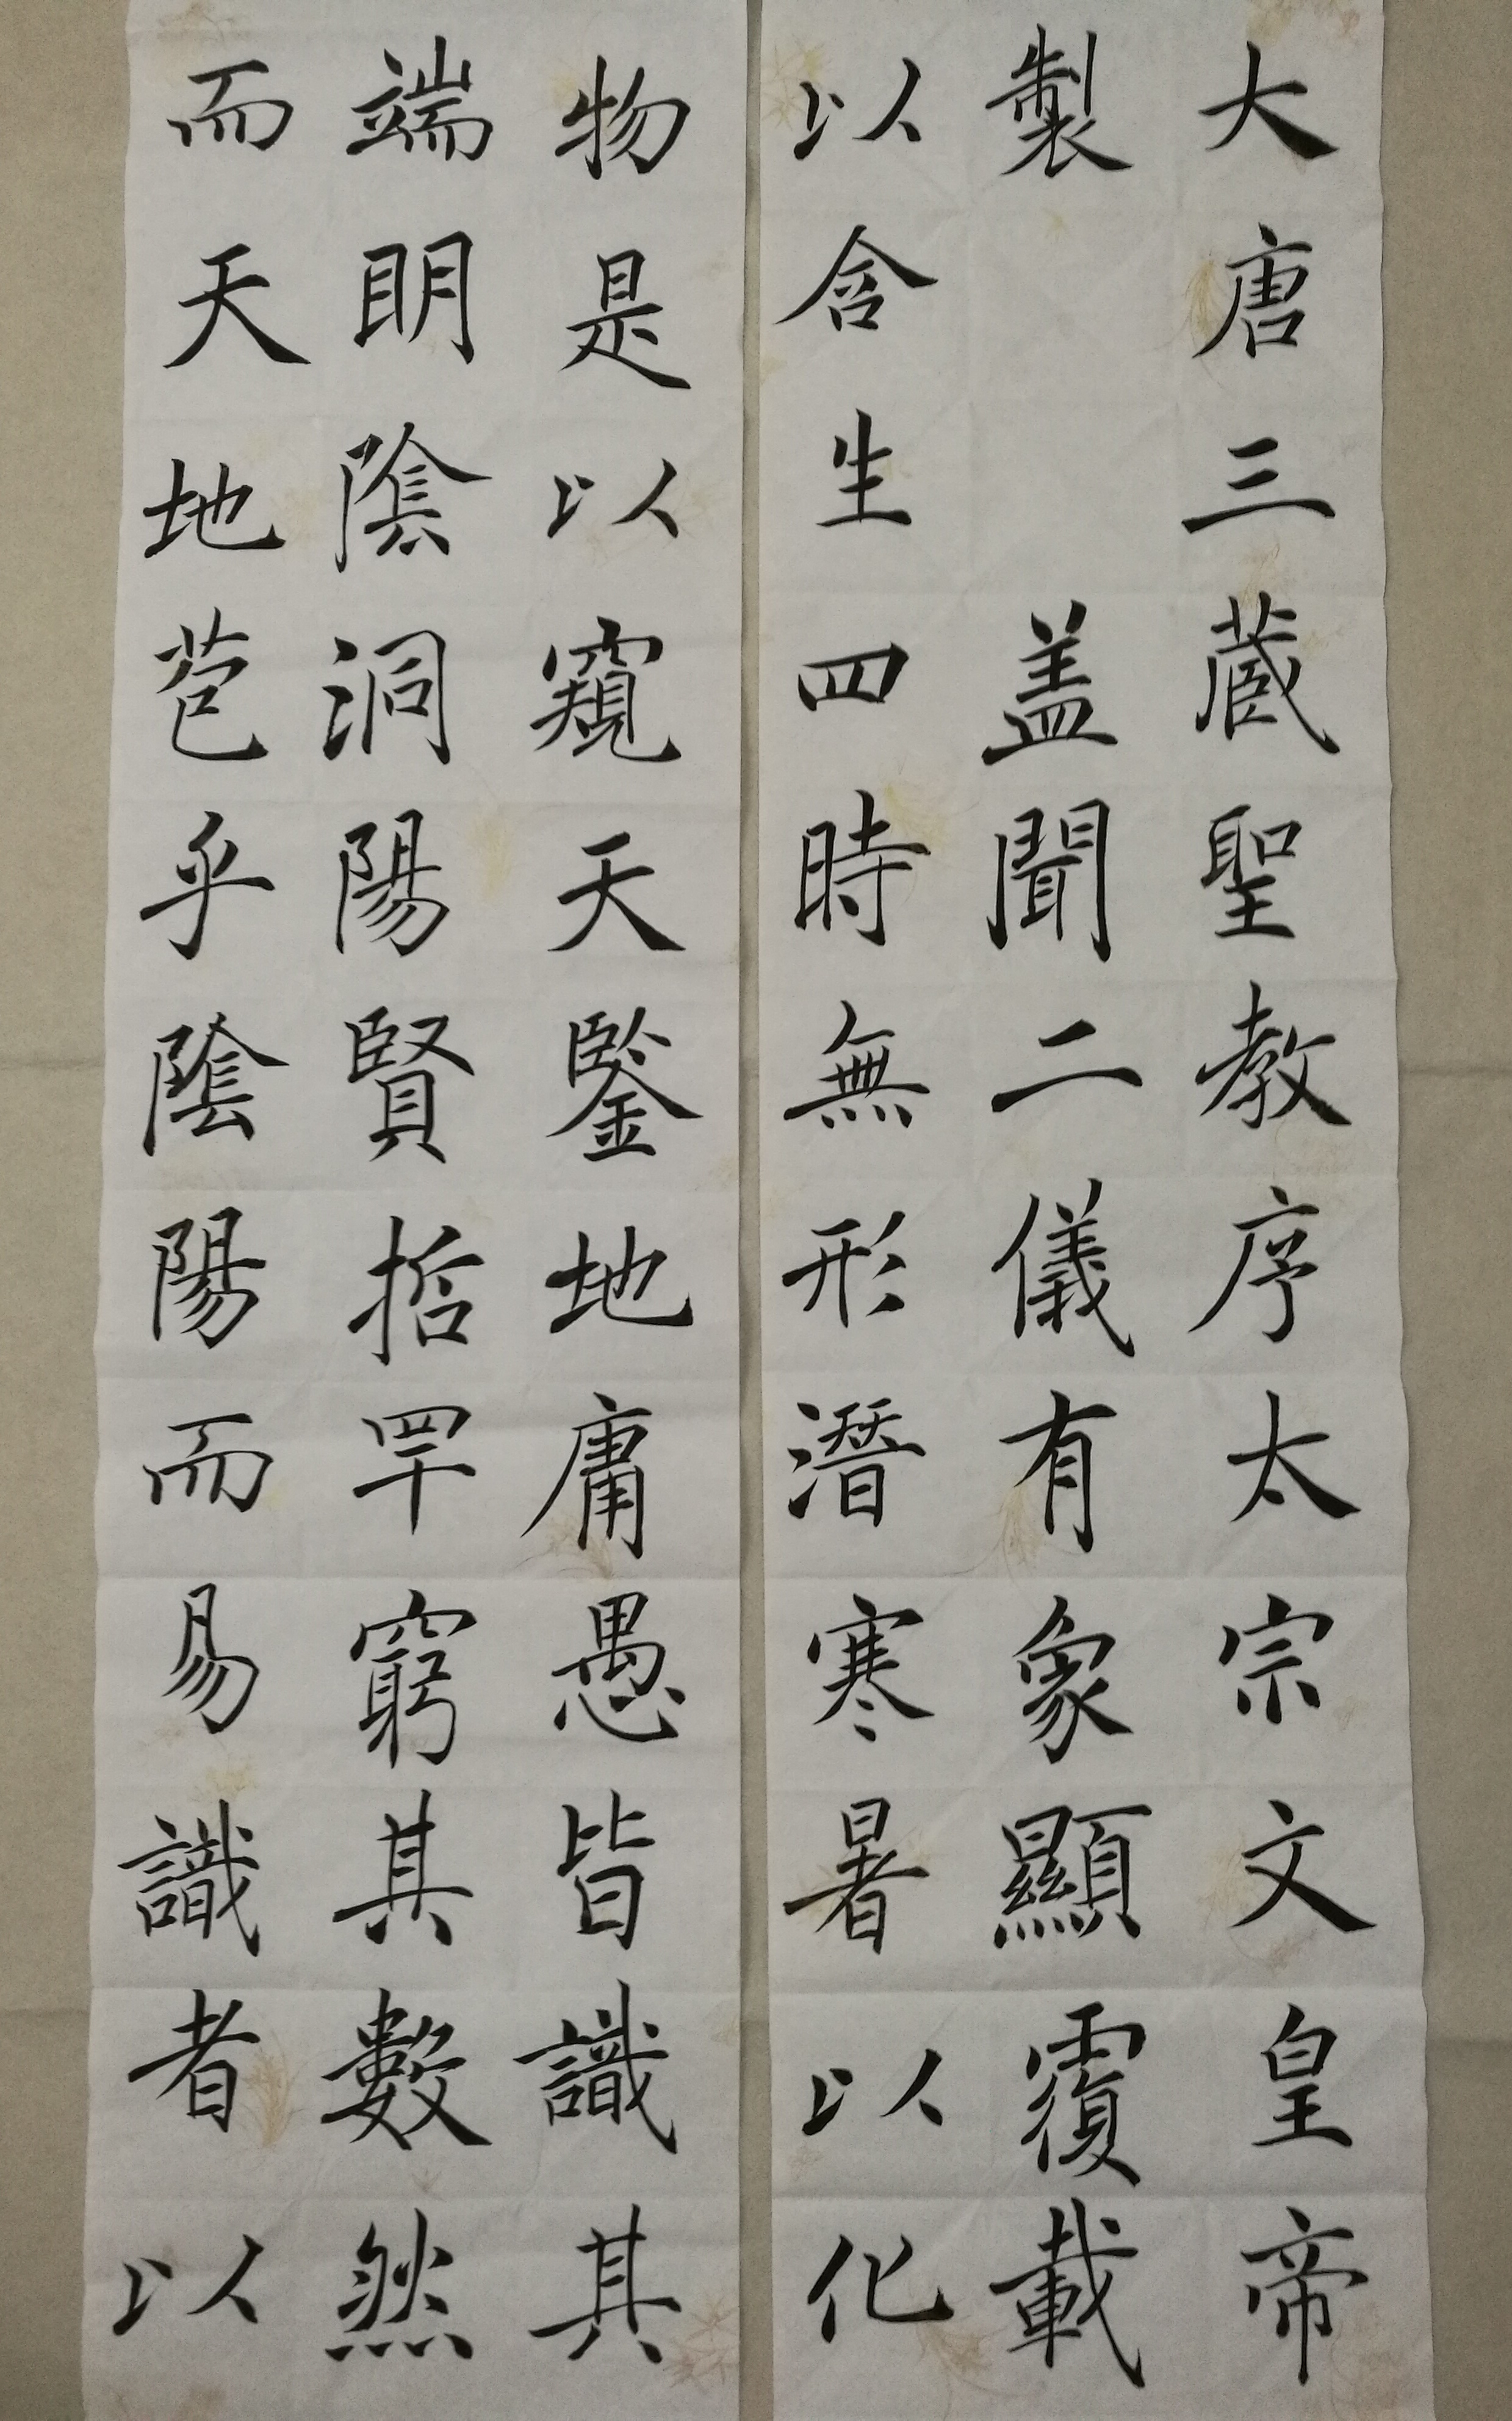 大唐三蔵聖教序太宗文皇帝
製盖聞二儀有象顯覆載
以含生四時無形潛寒暑以化
物是以窺天鑒地庸愚皆識其
端明陰洞陽賢哲罕窮其數然
而天地苞乎陰陽而易識者以